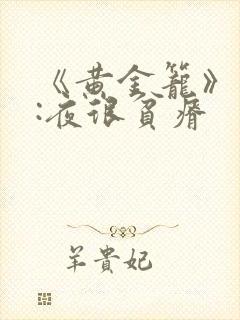 《黄金籠》
:夜很貧瘠
羊貴妃